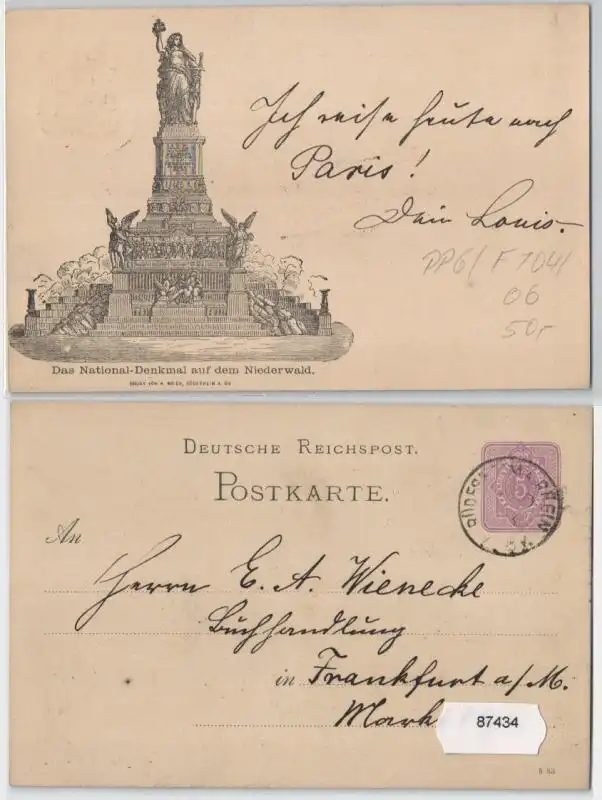 Ich reise heute nach
Paris!
Dein Louis.
PP6/F 704/
06
50,-
Das National-Denkmal auf dem Niederwald.
DEUTSCHE REICHSPOST.
POSTKARTE.
5
RHEIN
An
Herrn E. A. Wienecke
Buchhandlung
in Frankfurt a/M.
Mark
87434